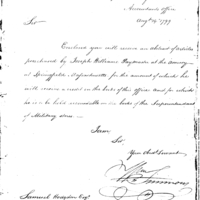 Accountants Office
Augt 24th 1799
Sir
Enclosed you will receive an abstract of articles
purchased by Joseph Williams Paymaster at the armoury
at Springfield, Massachusetts for the amount of which he
will receive a credit on the books of this office and for which
he is to be held accountable on the books of the Superintendant
of Military stores —
I am
Sir,
Your Obedt Servant
Wm Simmons
Samuel Hodgdon Esqr